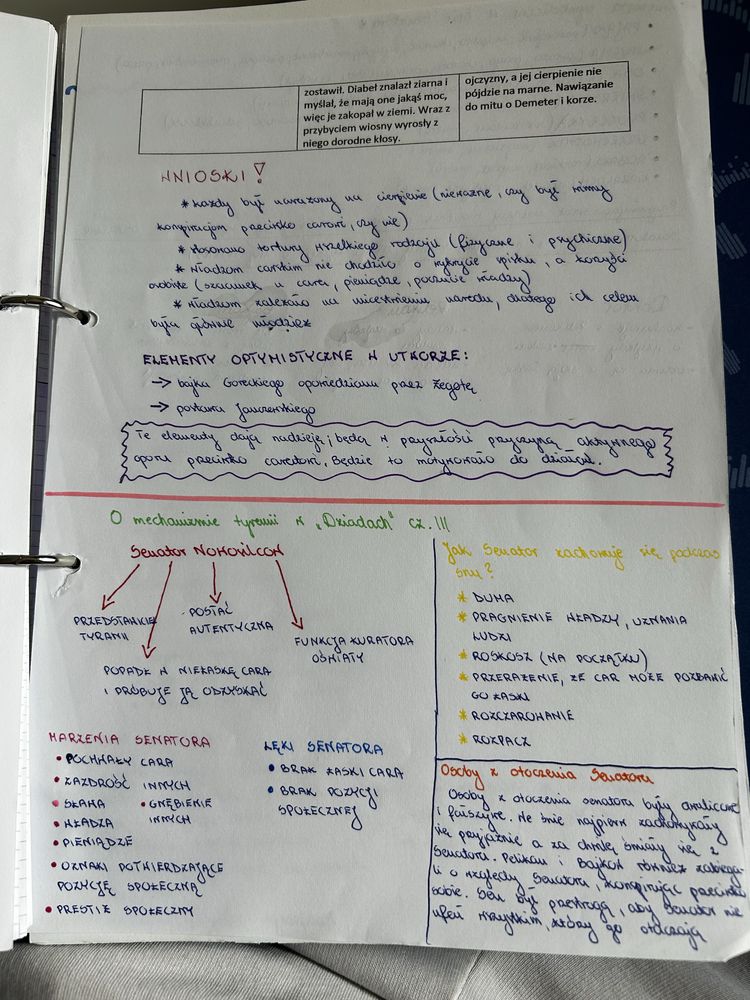 zostawił. Diabeł znalazł ziarna i
myślał, że mają one jakąś moc,
więc je zakopał w ziemi. Wraz z
przybyciem wiosny wyrosły z
niego dorodne kłosy.
ojczyzny, a jej cierpienie nie
pójdzie na marne. Nawiązanie
do mitu o Demeter i korze.
WNIOSKI !
* każdy był narażony na cierpienie (nieważne, czy był winny
konspiracjom przeciwko carowi, czy nie)
* stosowano tortury wszelkiego rodzaju (fizyczne i psychiczne)
* władzom carskim nie chodziło o wykrycie spisku, a korzyści
osobiste (szacunek u cara, pieniądze, poczucie władzy)
* władzom zależało na unicestwieniu narodu, dlatego ich celem
była głównie młodzież
ELEMENTY OPTYMISTYCZNE W UTWORZE:
→ bajka Goreckiego opowiedziana przez Żegotę
→ postawa Janczewskiego
Te elementy dają nadzieję i będą w przyszłości przyczyną aktywnego
oporu przeciwko caratowi. Będzie to motywowało do działań.
O mechanizmie tyranii w „Dziadach” cz. III
Senator NOWOSILCOW
PRZEDSTAWICIEL
TYRANII
POSTAĆ
AUTENTYCZNA
FUNKCJA KURATORA
OŚWIATY
POPADŁ W NIEŁASKĘ CARA
I PRÓBUJE JĄ ODZYSKAĆ
MARZENIA SENATORA
• POCHWAŁY CARA
• ZAZDROŚĆ INNYCH
• SŁAWA
• GNĘBIENIE
INNYCH
• WŁADZA
• PIENIĄDZE
• OZNAKI POTWIERDZAJĄCE
POZYCJĘ SPOŁECZNĄ
• PRESTIŻ SPOŁECZNY
LĘKI SENATORA
• BRAK ŁASKI CARA
• BRAK POZYCJI
SPOŁECZNEJ
Jak Senator zachowuje się podczas
snu?
* DUMA
* PRAGNIENIE WŁADZY, UZNANIA
LUDZI
* ROSKOSZ (NA POCZĄTKU)
* PRZERAŻENIE, ŻE CAR MOŻE POZBAWIĆ
GO ŁASKI
* ROZCZAROWANIE
* ROZPACZ
Osoby z otoczenia Senatora
Osoby z otoczenia senatora były dwulicowe
i fałszywe. We śnie najpierw zachowywały
się przyjaźnie a za chwilę śmiały się z
Senatora. Pelikan i Bajkow również zabiega-
li o względy Senatora, konspirując przeciwko
sobie. Sen był przestrogą, aby Senator nie
ufał wszystkim, którzy go otaczają